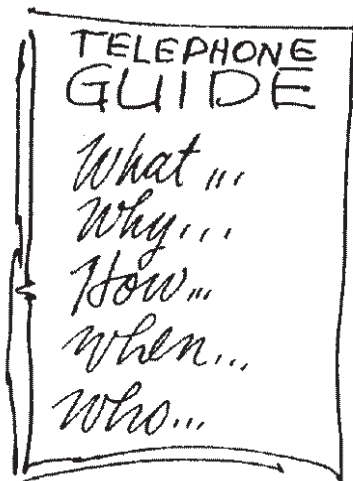 TELEPHONE
GUIDE
What...
Why...
How...
When...
Who...